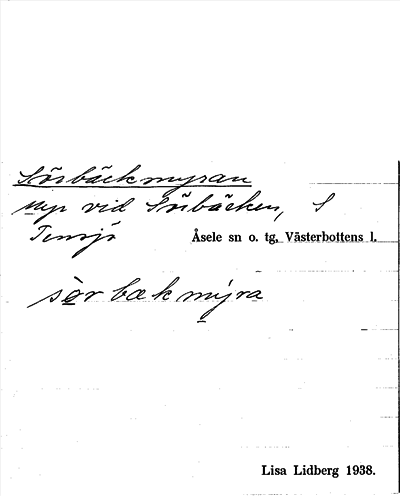 Sörbäckmyran
myr vid Sörbäcken, S
Åsele sn o. tg, Västerbottens l.
sör bæk myra
Lisa Lidberg 1938.